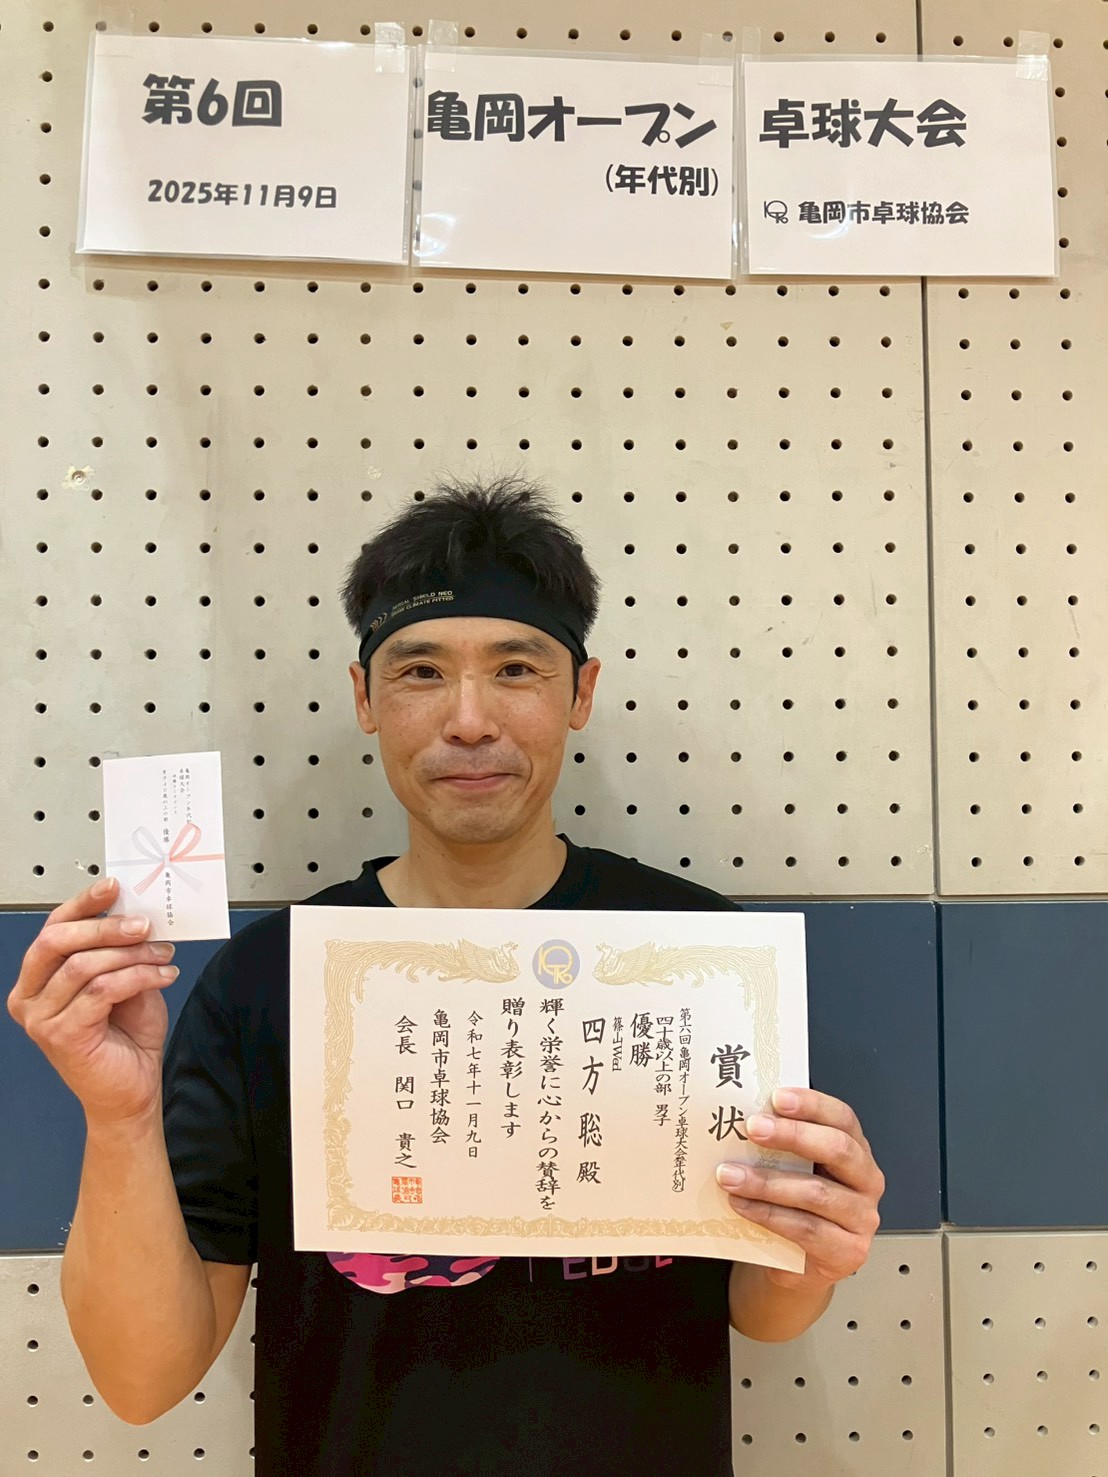 第6回
2025年11月9日
亀岡オープン
(年代別)
卓球大会
亀岡市卓球協会
SHIELD NEO
CLIMATE FITTED
亀岡オープン年代別
卓球大会
優勝
亀岡市卓球協会
賞状
第六回亀岡オープン卓球大会(年代別)
四十歳以上の部 男子
優勝
篠山Wel
四方 聡 殿
輝く栄誉に心からの賛辞を
贈り表彰します
令和七年十一月九日
亀岡市卓球協会
会長 関口 貴之